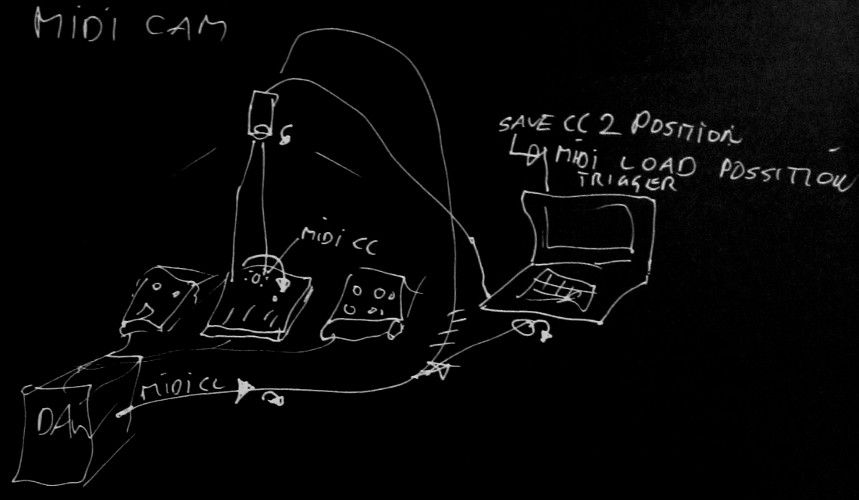 MIDI CAM
SAVE CC 2 POSITION
MIDI LOAD POSSITION
TRIGGER
MIDI CC
MIDI CC
DAW